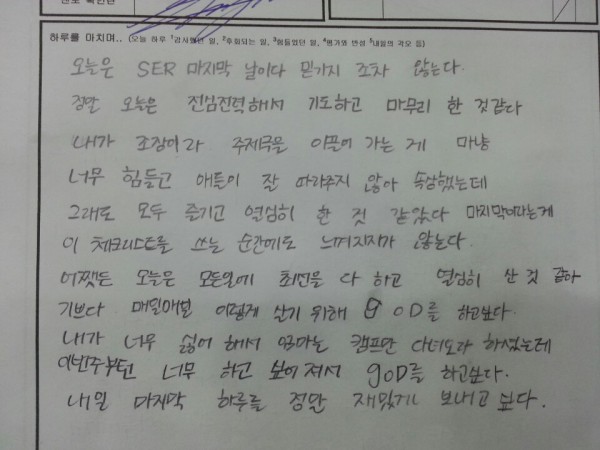 하루를 마치며.. (오늘 하루 ¹감사했던 일, ²후회되는 일, ³힘들었던 일, ⁴평가와 반성 ⁵내일의 각오 등)
오늘은 SER 마지막 날이다 믿가지 조차 않는다.
정말 오늘은 전심전력해서 기도하고 마무리 한 것같다
내가 조장이라 주제극을 이끌어 가는 게 마냥
너무 힘들고 애들이 잘 따라주지 않아 속상했는데
그래도 모두 즐기고 열심히 한 것 같았다 마지막이라는게
이 체크리스트를 쓰는 순간에도 느껴지지가 않는다.
어쨌든 오늘은 모든일에 최선을 다 하고 열심히 산 것 같아
기쁘다 매일매일 이렇게 살기 위해 gOD를 하고싶다.
내가 너무 싫어 해서 엄마는 캠프만 다녀오라 하셨는데
이번주부턴 너무 하고 싶어져서 gOD를 하고싶다.
내일 마지막 하루를 정말 재밌게 보내고 싶다.